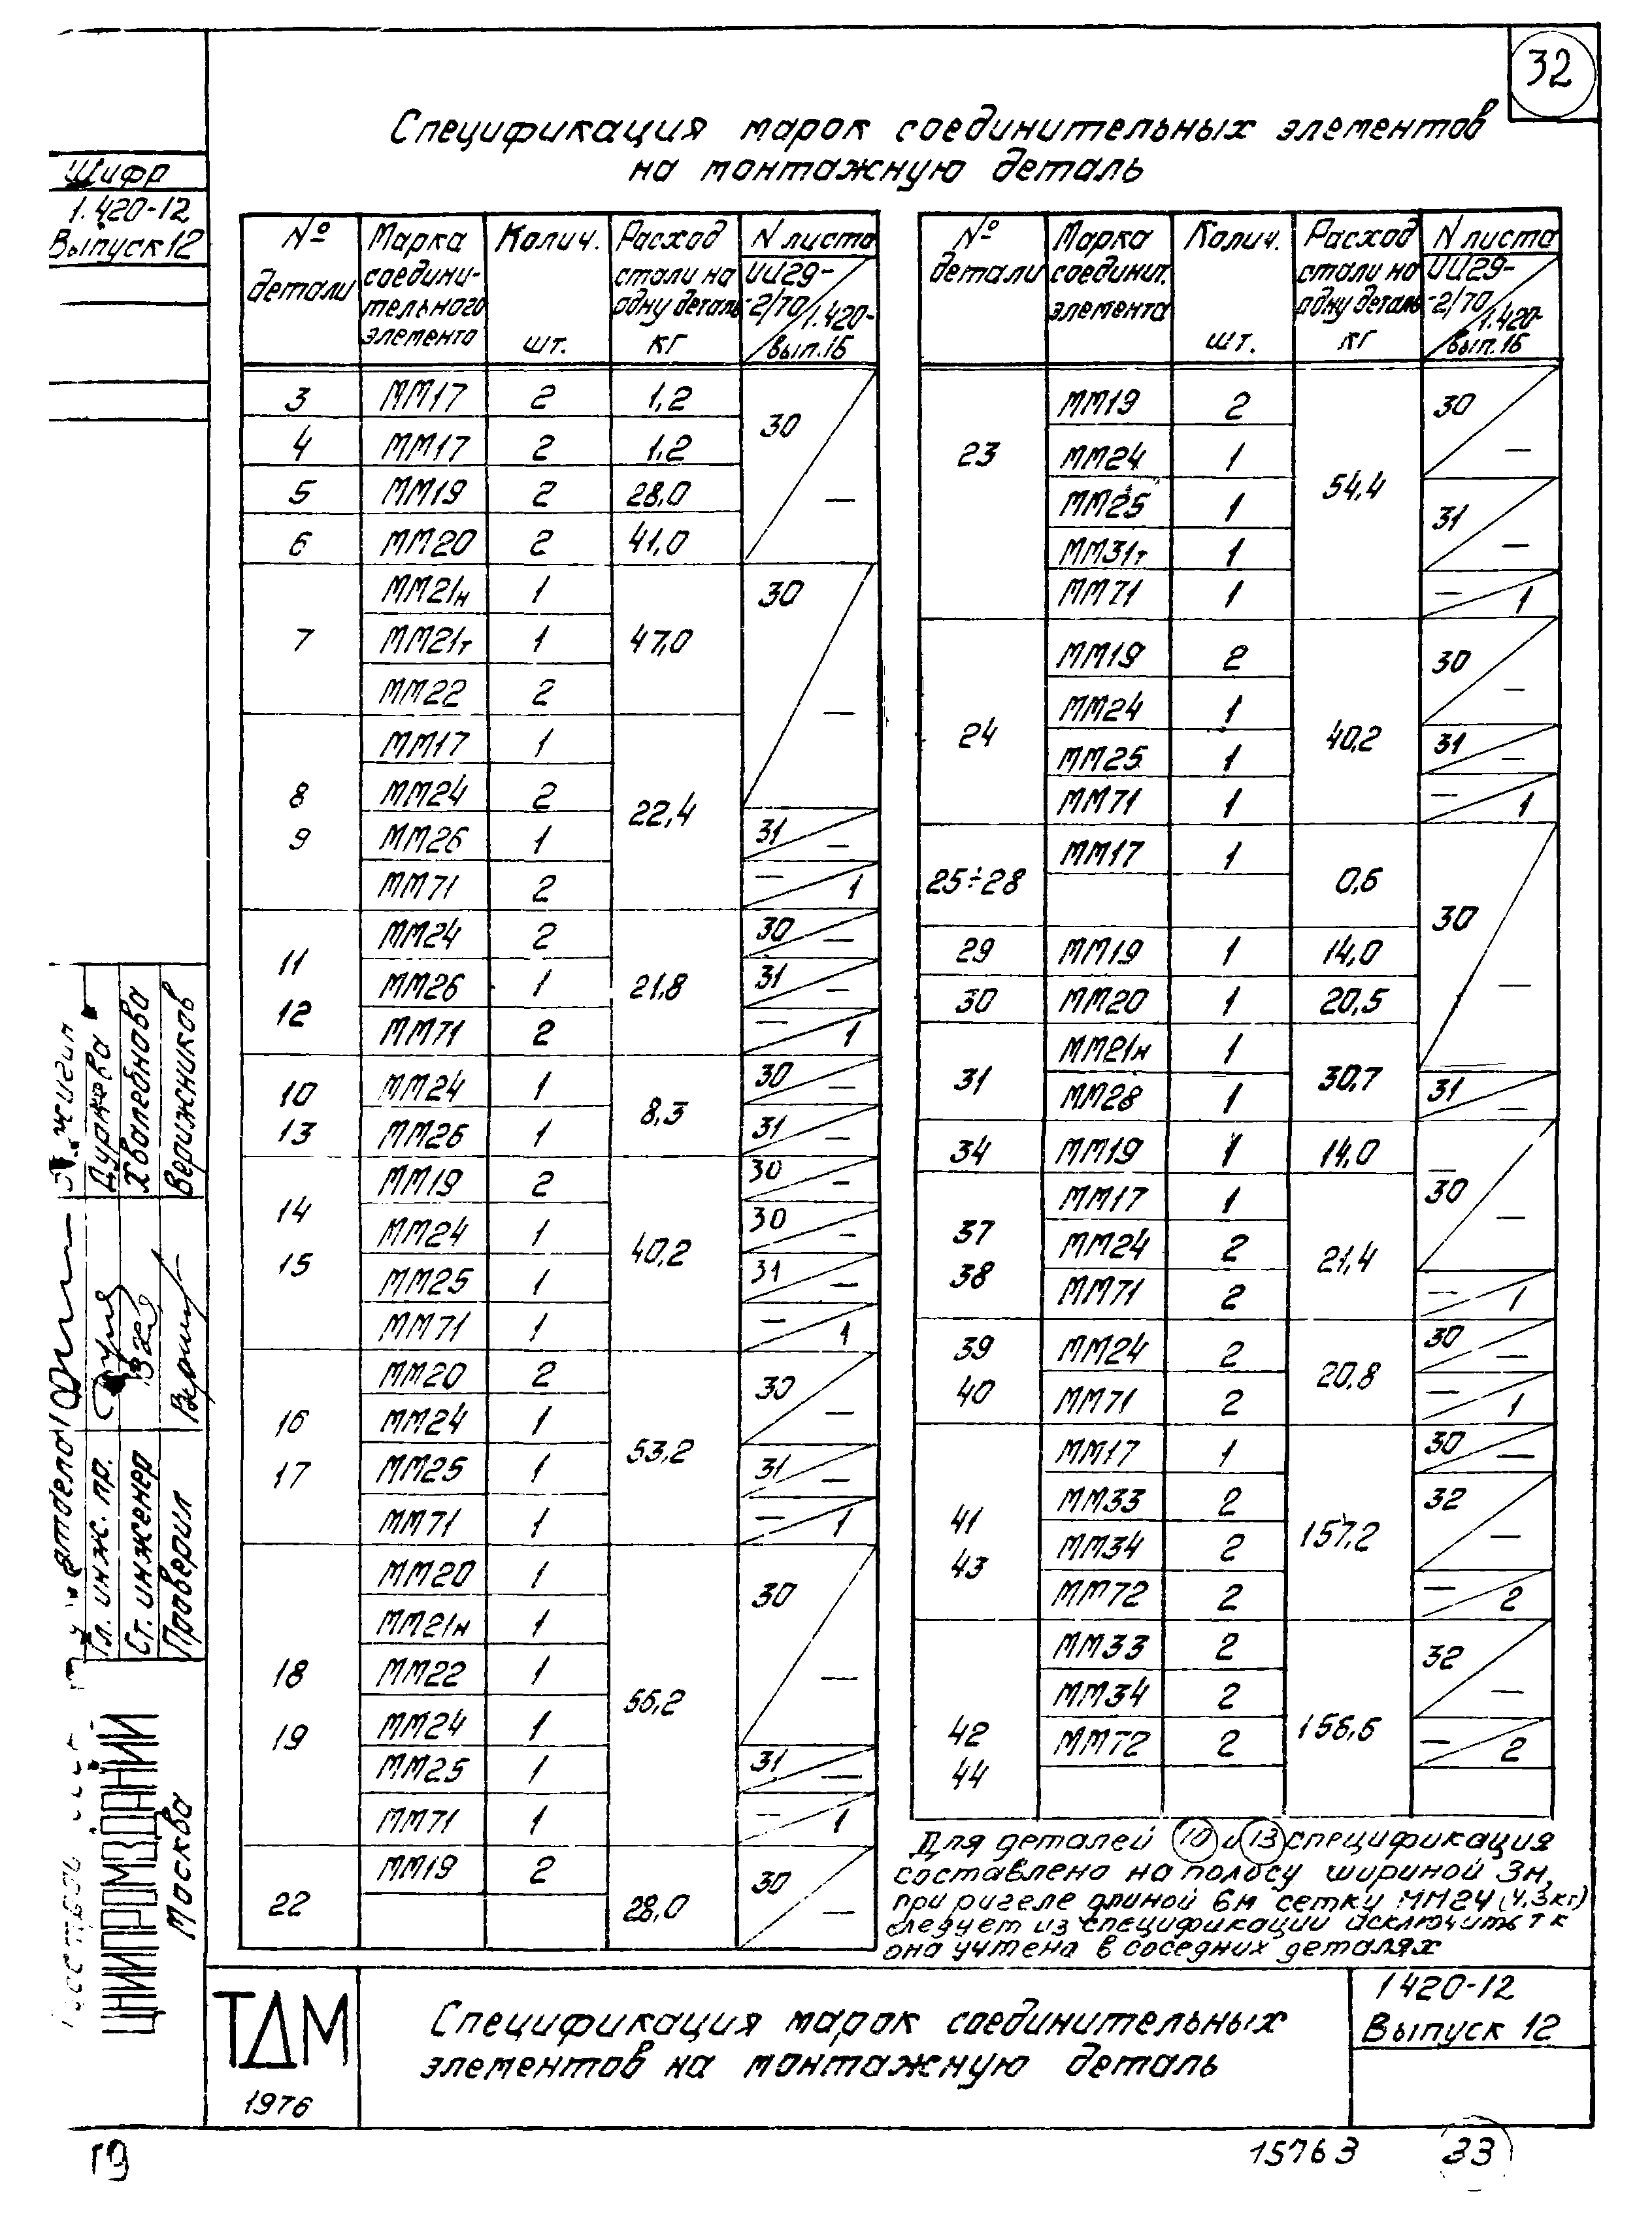 32
Спецификация марок соединительных элементов
на монтажную деталь
Шифр
1.420-12
Выпуск 12
№ детали | Марка соедини-тельного элемента | Колич. шт. | Расход стали на одну деталь кг | N листа ИИ29-2/70 / 1.420- вып.16
3 | ММ17 | 2 | 1,2 | 30 / —
4 | ММ17 | 2 | 1,2
5 | ММ19 | 2 | 28,0
6 | ММ20 | 2 | 41,0
7 | ММ21н | 1 | 47,0 | 30 / —
ММ21т | 1
ММ22 | 2
8 9 | ММ17 | 1 | 22,4
ММ24 | 2
ММ26 | 1 | 31 / —
ММ71 | 2 | — / 1
11 12 | ММ24 | 2 | 21,8 | 30 / —
ММ26 | 1 | 31 / —
ММ71 | 2 | — / 1
10 13 | ММ24 | 1 | 8,3 | 30 / —
ММ26 | 1 | 31 / —
14 15 | ММ19 | 2 | 40,2 | 30 / —
ММ24 | 1 | 30 / —
ММ25 | 1 | 31 / —
ММ71 | 1 | — / 1
16 17 | ММ20 | 2 | 53,2 | 30 / —
ММ24 | 1
ММ25 | 1 | 31 / —
ММ71 | 1 | — / 1
18 19 | ММ20 | 1 | 30 / —
ММ21н | 1
ММ22 | 1
ММ24 | 1
ММ25 | 1 | 31 / —
ММ71 | 1 | — / 1
22 | ММ19 | 2 | 28,0 | 30 / —
№ детали | Марка соединит. элемента | Колич. шт. | Расход стали на одну деталь кг | N листа ИИ29-2/70 / 1.420- вып.16
23 | ММ19 | 2 | 54,4 | 30 / —
ММ24 | 1
ММ25 | 1 | 31 / —
ММ31т | 1
ММ71 | 1 | — / 1
24 | ММ19 | 2 | 40,2 | 30 / —
ММ24 | 1
ММ25 | 1 | 31 / —
ММ71 | 1 | — / 1
25÷28 | ММ17 | 1 | 0,6 | 30 / —
29 | ММ19 | 1 | 14,0
30 | ММ20 | 1 | 20,5
31 | ММ21н | 1 | 30,7
ММ28 | 1 | 31 / —
34 | ММ19 | 1 | 14,0 | 30 / —
37 38 | ММ17 | 1 | 21,4
ММ24 | 2
ММ71 | 2 | — / 1
39 40 | ММ24 | 2 | 20,8 | 30 / —
ММ71 | 2 | — / 1
41 43 | ММ17 | 1 | 157,2 | 30 / —
ММ33 | 2 | 32 / —
ММ34 | 2
ММ72 | 2 | — / 2
42 44 | ММ33 | 2 | 156,6 | 32 / —
ММ34 | 2
ММ72 | 2 | — / 2
Для деталей 10 и 13 спецификация
составлена на полосу шириной 3м,
при ригеле длиной 6м сетку ММ24 (4,3кг)
следует из спецификации исключить т к
она учтена в соседних деталях
Хволебнова
Верижников
Гл. инж. пр.
Ст. инженер
Проверил
ЦНИИПРОМЗДАНИЙ
Москва
ТДМ
1976
Спецификация марок соединительных
элементов на монтажную деталь
1 420-12
Выпуск 12
19
15763
33